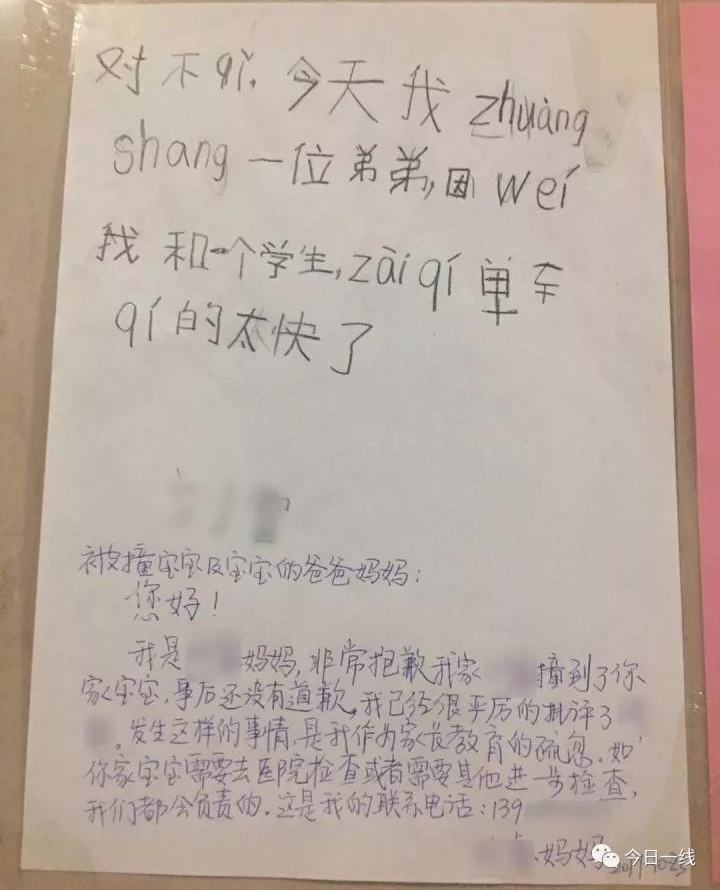 对不qǐ,今天我zhuàng
shang一位弟弟,因wéi
我和一个学生,zài qí单车
qí的太快了
被撞宝宝及宝宝的爸爸妈妈:
您好!
我是 妈妈,非常抱歉我家 撞到了你
家宝宝,事后还没有道歉,我已经很严厉的批评了
。发生这样的事情,是我作为家长教育的疏忽,如
你家宝宝需要去医院检查或者需要其他进一步检查,
我们都会负责的。这是我的联系电话:139
妈妈
今日一线